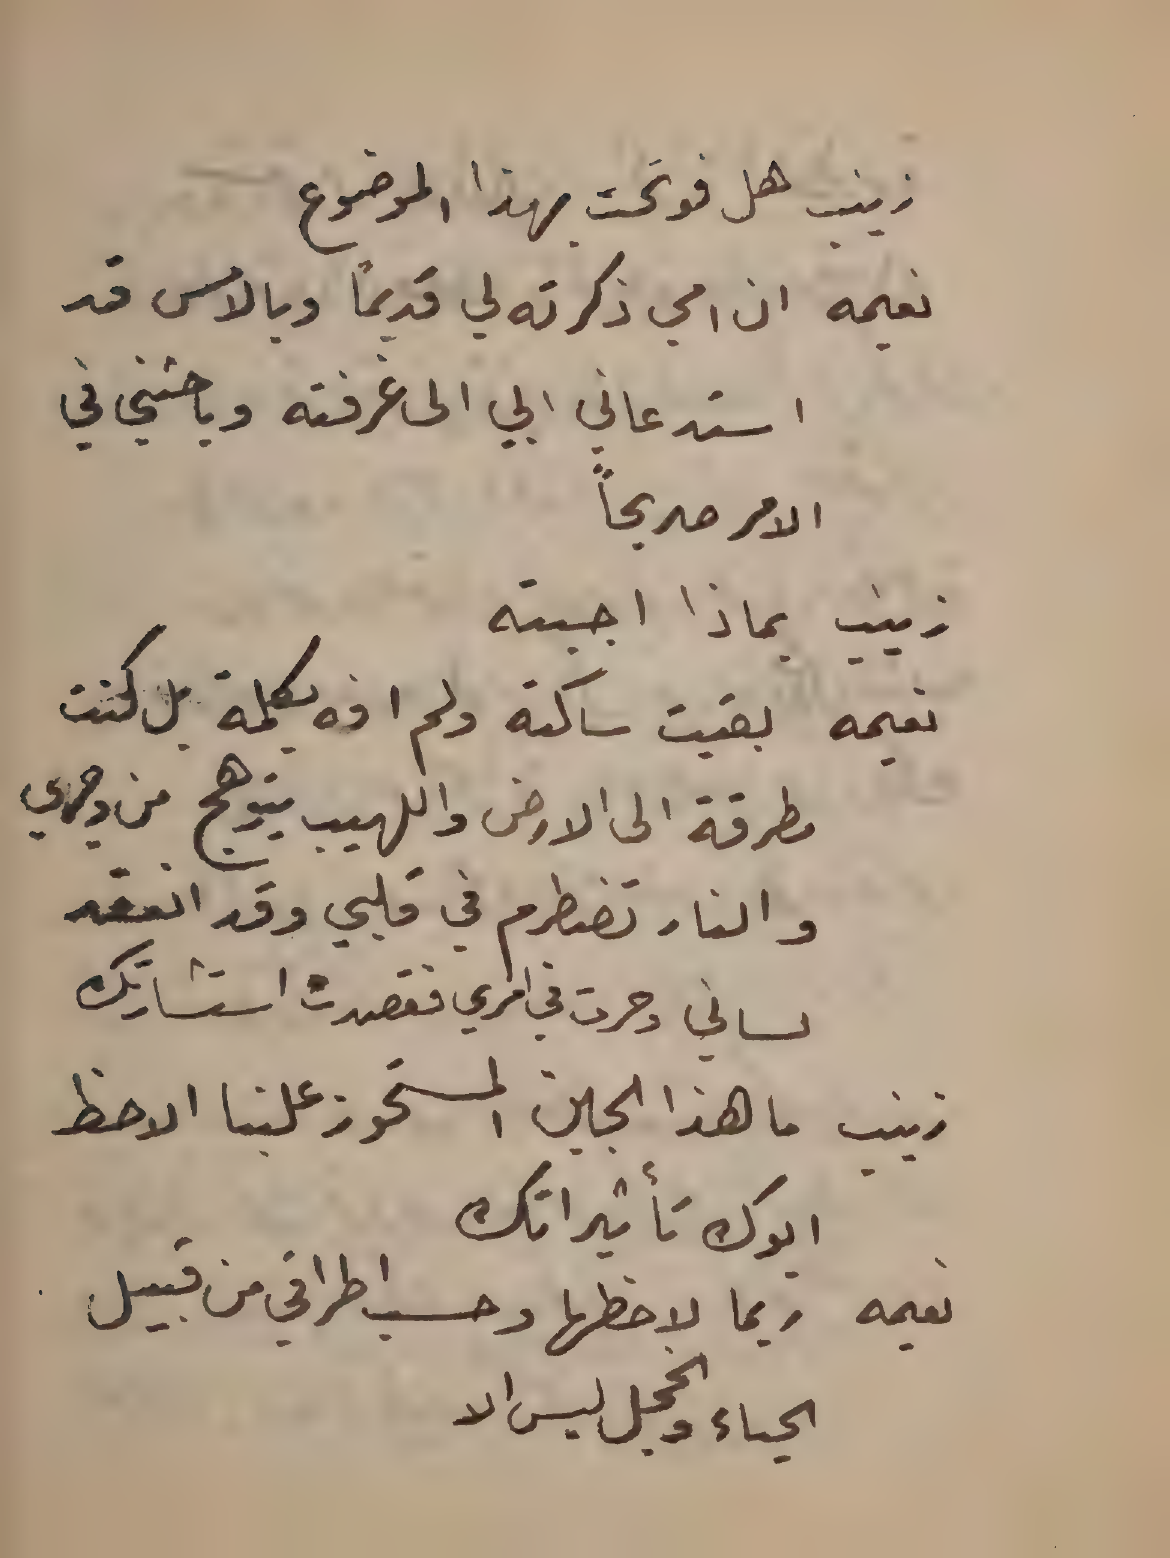 زينب هل فوتحت بهذا الموضوع
نعيمه ان امي ذكرته لي قديماً وبالامس قد
استدعاني ابي الى غرفته وباحثني في
الامر صريحاً
زينب بماذا اجبته
نعيمه بقيت ساكتة ولم افه بكلمة بل كنت
مطرقة الى الارض واللهيب يتوهج من وجهي
والنار تضطرم في قلبي وقد انعقد
لساني وحرت في امري فقصدت استشارتك
زينب ما هذا الجبن المستحوز علينا الاحظ
ابوك تأثيراتك
نعيمه ربما لاحظها وحسب اطراقي من قبيل
الحياء والخجل ليس الا